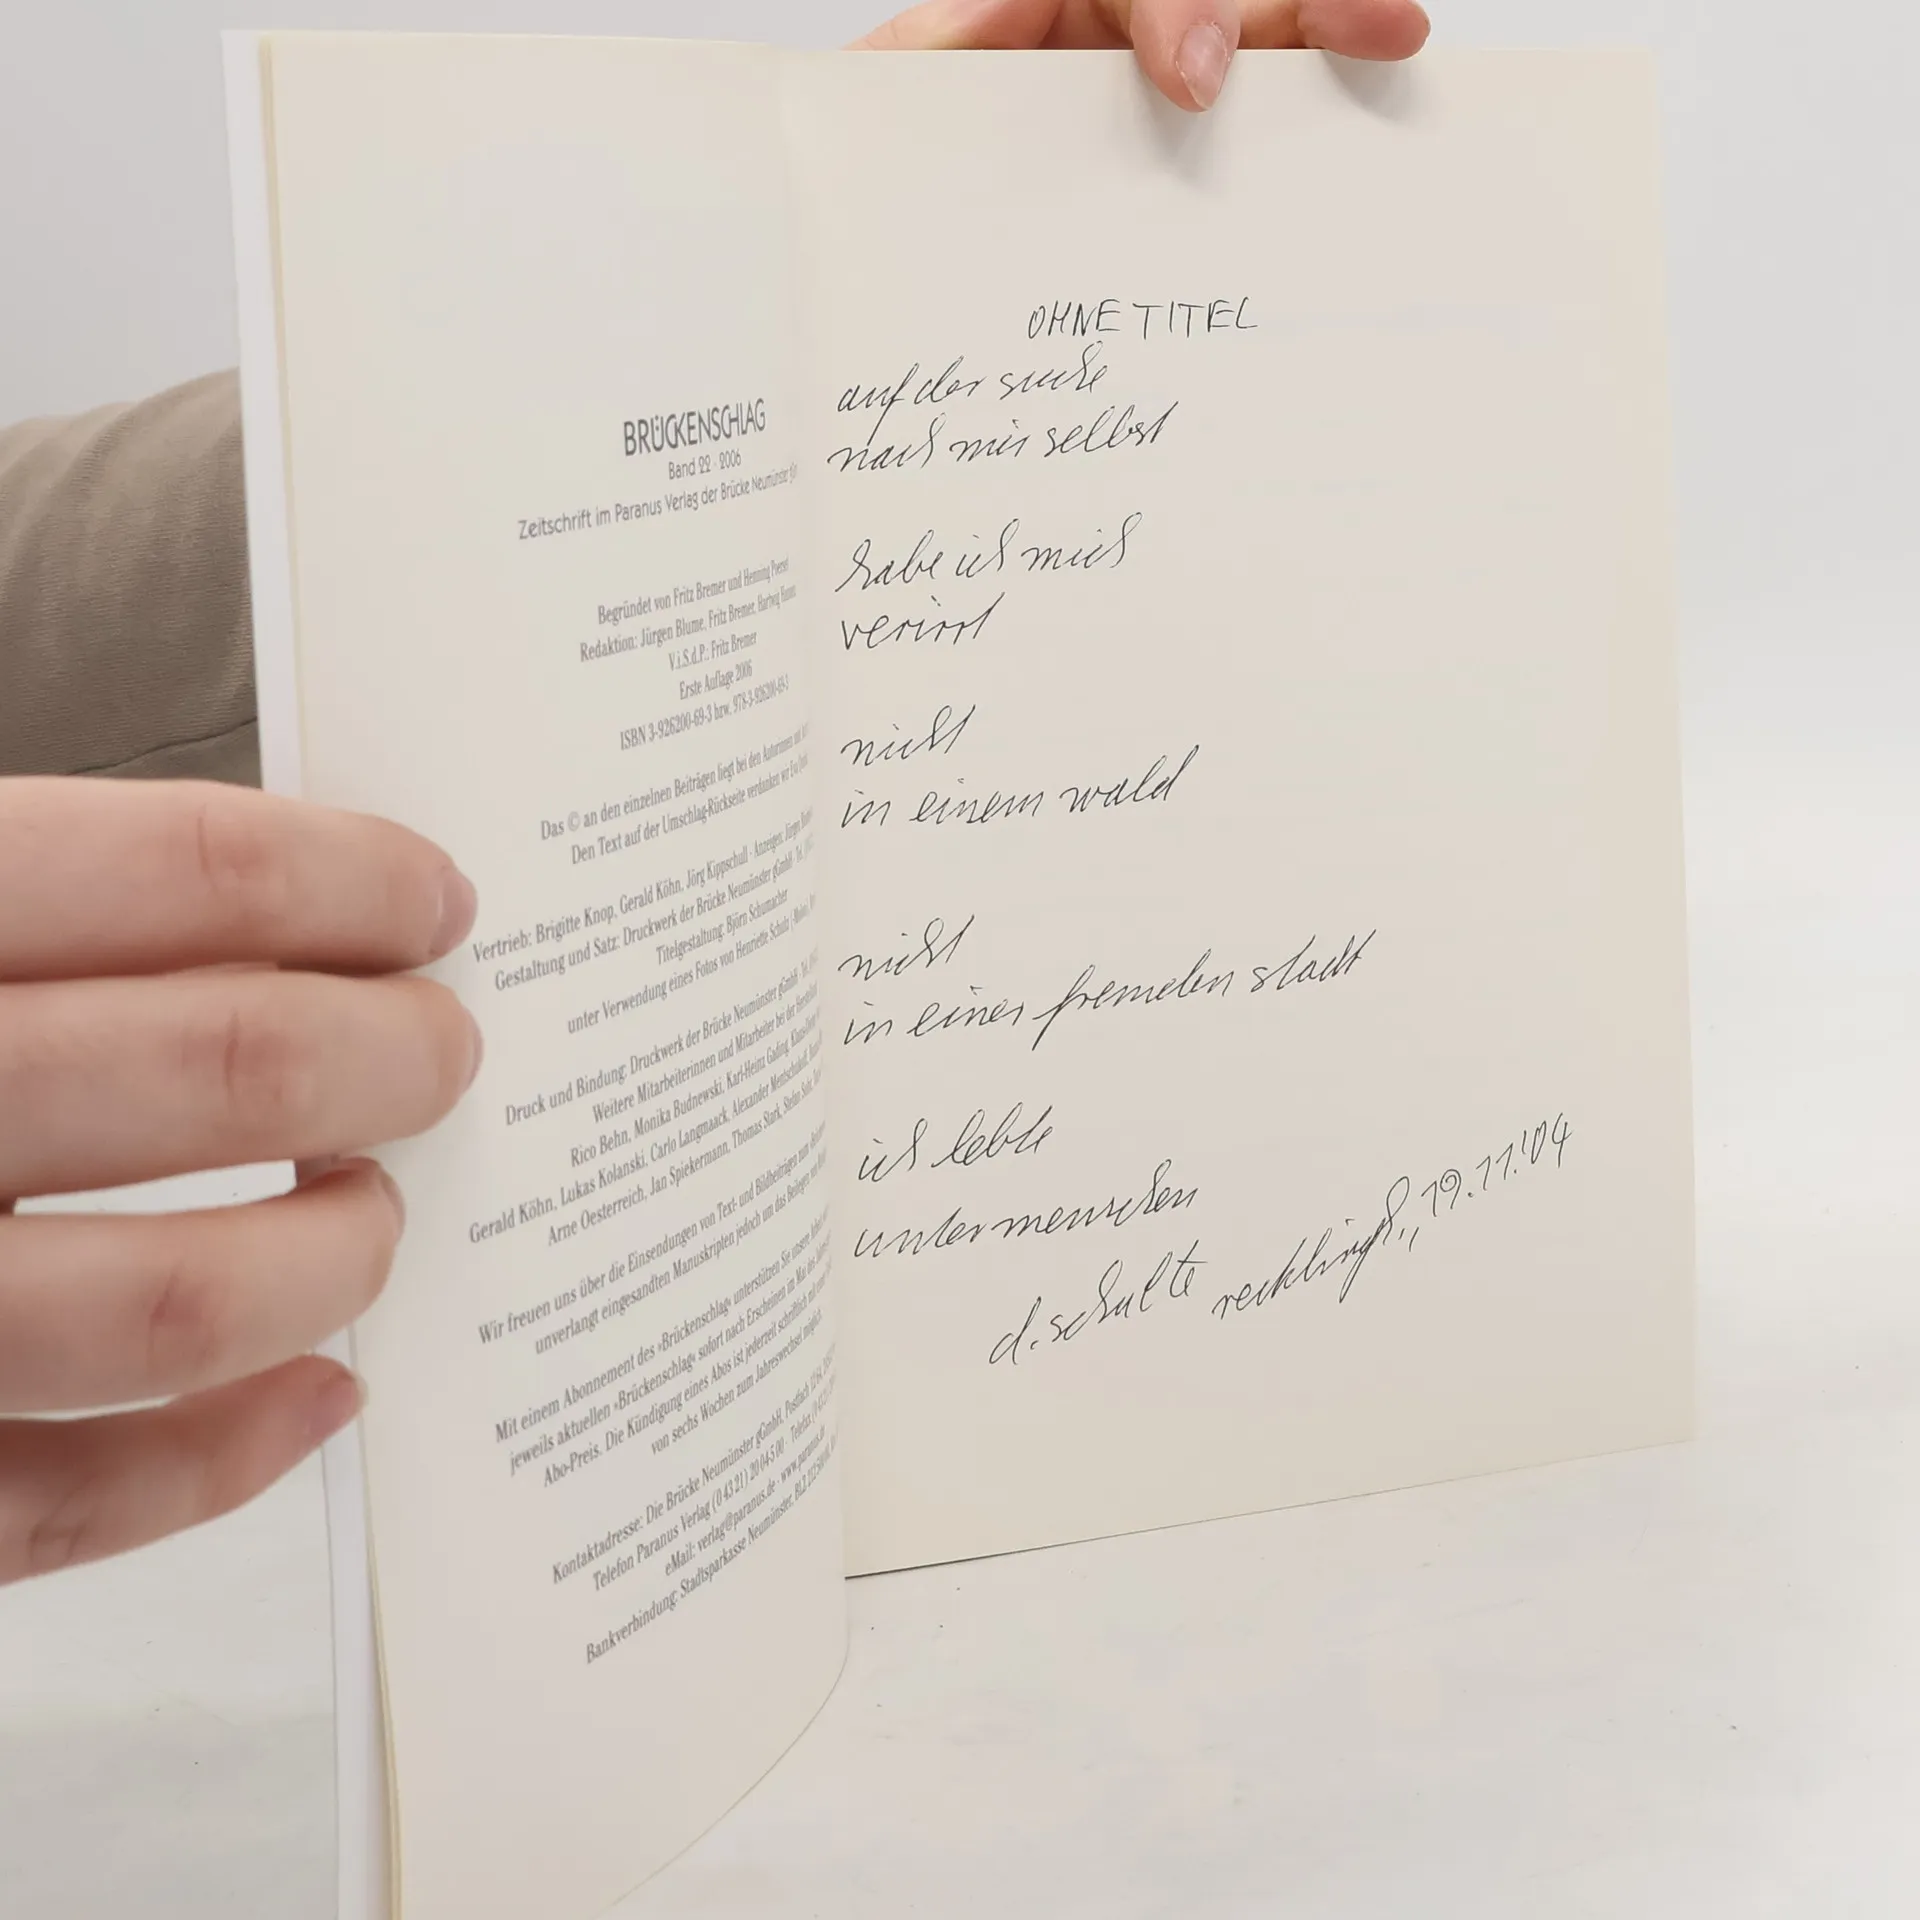 BRÜCKENSCHLAG
Band 22 · 2006
Zeitschrift im Paranus Verlag der Brücke Neumünster
Begründet von Fritz Bremer und Henning Poersel
Redaktion: Jürgen Blume, Fritz Bremer, Hartwig
V.i.S.d.P.: Fritz Bremer
Erste Auflage 2006
ISBN 3-926200-69-3 bzw. 978-3-926200-69-3
Das © an den einzelnen Beiträgen liegt bei den Autorinnen und
Den Text auf der Umschlag-Rückseite verdanken wir Eva
Vertrieb: Brigitte Knop, Gerald Köhn, Jörg Kippschull · Anzeigen: Jürgen
Gestaltung und Satz: Druckwerk der Brücke Neumünster gGmbH · Tel.
Titelgestaltung: Björn Schumacher
unter Verwendung eines Fotos von Henriette Schulz
Druck und Bindung: Druckwerk der Brücke Neumünster gGmbH · Tel.
Weitere Mitarbeiterinnen und Mitarbeiter bei der Herstellung
Rico Behn, Monika Budnewski, Karl-Heinz Gading,
Gerald Köhn, Lukas Kolanski, Carlo Langmaack, Alexander Mentschukoff,
Arne Oesterreich, Jan Spiekermann, Thomas Stark, Stefan
Wir freuen uns über die Einsendungen von Text- und Bildbeiträgen zum
unverlangt eingesandten Manuskripten jedoch um das Beilegen von
Mit einem Abonnement des »Brückenschlag« unterstützen Sie unsere Arbeit
jeweils aktuellen »Brückenschlag« sofort nach Erscheinen im Mai des Jahres
Abo-Preis. Die Kündigung eines Abos ist jederzeit schriftlich mit einer Frist
von sechs Wochen zum Jahreswechsel möglich.
Kontaktadresse: Die Brücke Neumünster gGmbH, Postfach
Telefon Paranus Verlag (0 43 21) 20 04-5 00 · Telefax
eMail: verlag@paranus.de · www.paranus.de
Bankverbindung: Stadtsparkasse Neumünster, BLZ
OHNE TITEL
auf der suche
nach mir selbst
habe ich mich
verirrt
nicht
in einem wald
nicht
in einer fremden stadt
ich lebte
unter menschen
d. schulte recklingh., 19.11.'04